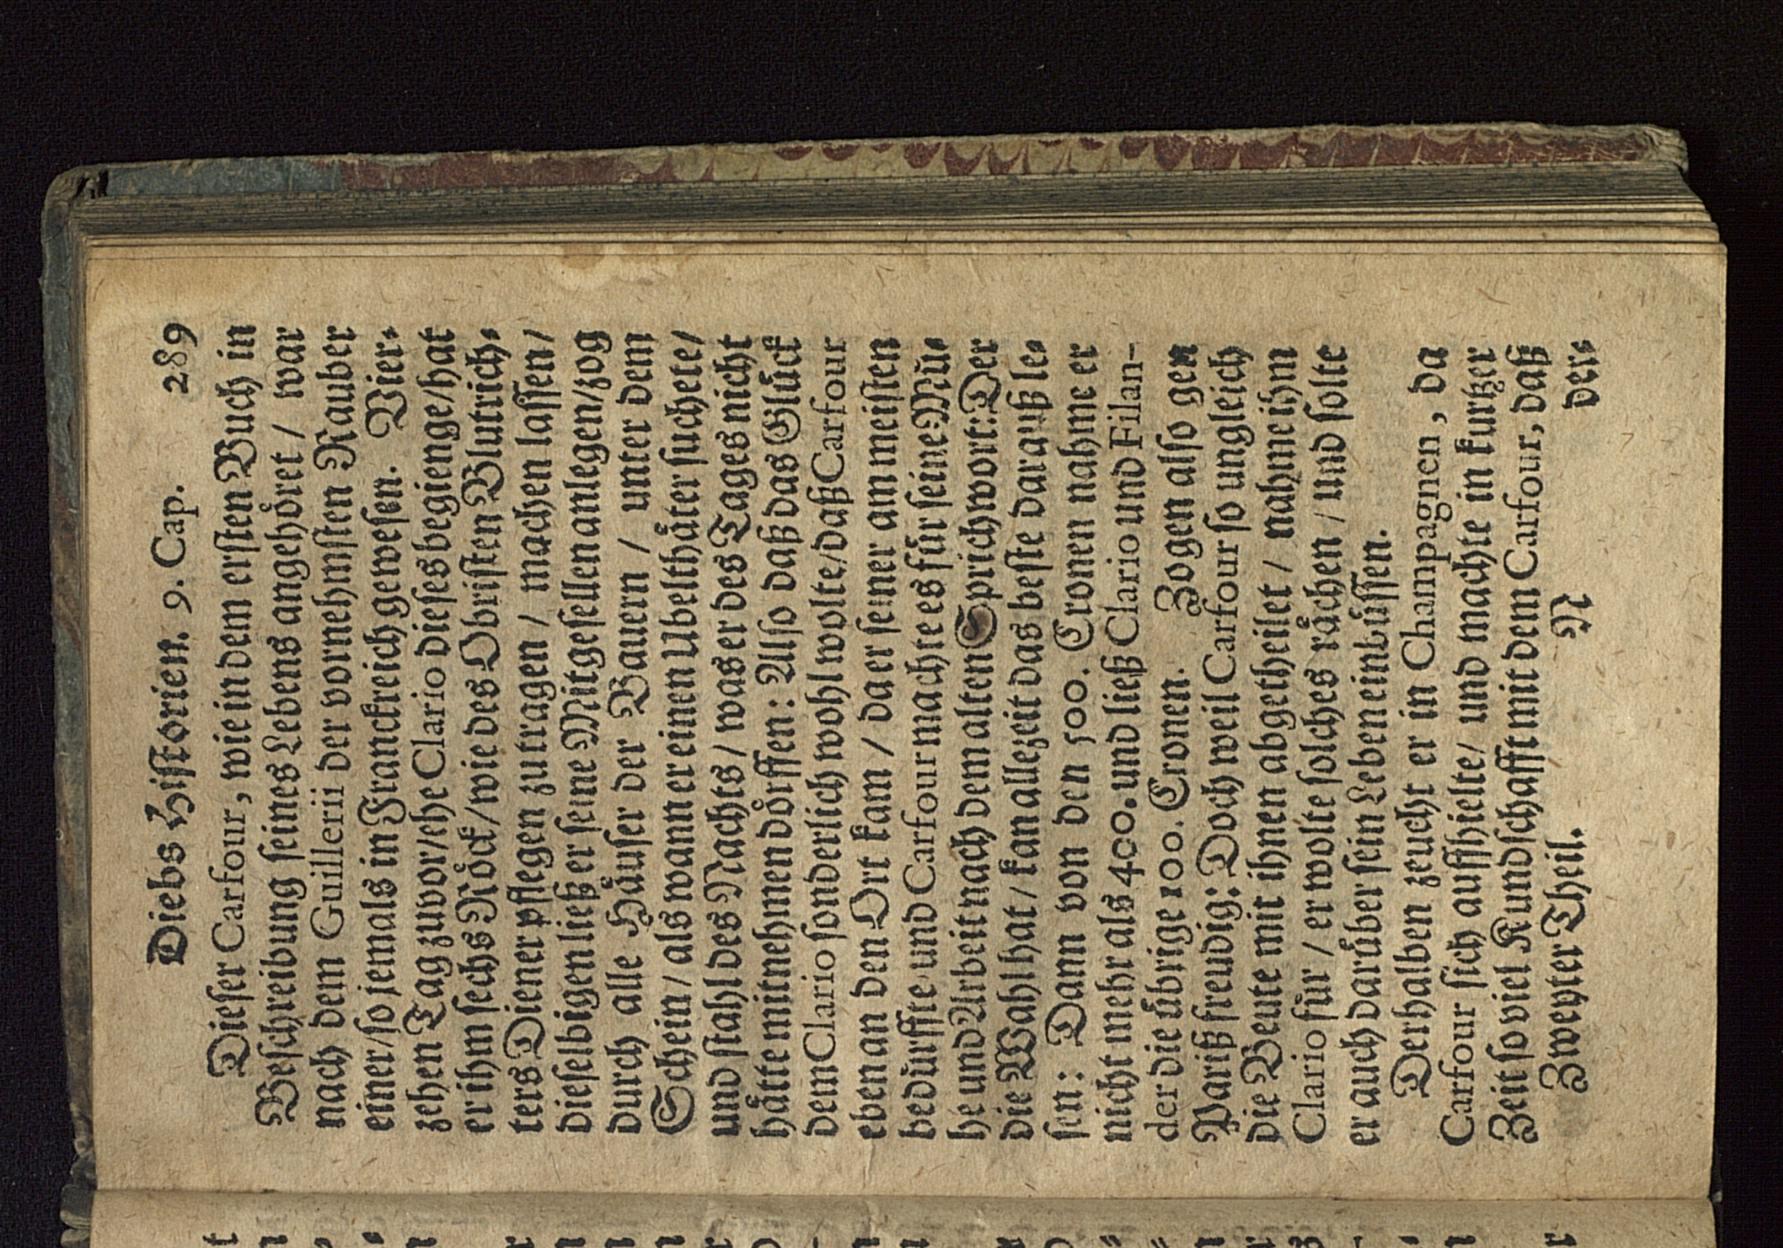 Diebs Historien. 9. Cap. 289
Dieser Carfour, wie in dem ersten Buch in
Beschreibung seines Lebens angehöret / war
nach dem Guillerii der vornehmsten Rauber
einer / so jemals in Franckreich gewesen. Vier-
zehen Tag zuvor / ehe Clario dieses begienge / hat
er ihm sechs Röck / wie des Obristen Blutrich-
ters Diener pflegen zu tragen / machen lassen /
dieselbigen ließ er seine Mitgesellen anlegen / zog
durch alle Häuser der Bauern / unter dem
Schein / als wann er einen Ubelthäter suchete /
und stahl des Nachts / was er des Tages nicht
hätte mitnehmen dörffen: Also daß das Glück
dem Clario sonderlich wohl wolte / daß Carfour
eben an den Ort kam / da er seiner am meisten
bedürffte / und Carfour machte es für seine Mü-
he und Arbeit nach dem alten Sprichwort: Der
die Wahl hat / kan allezeit das beste darauß le-
sen: Dann von den 500. Cronen nahme er
nicht mehr als 400. und ließ Clario und Filan-
der die übrige 100. Cronen. Zogen also gen
Pariß freudig: Doch weil Carfour so ungleich
die Beute mit ihnen abgetheilet / nahme ihm
Clario für / er wolte solches rächen / und solte
er auch darüber sein Leben einbüssen.
Derhalben zeucht er in Champagnen, da
Carfour sich auffhielte / und machte in kurtzer
Zeit so viel Kundschafft mit dem Carfour, daß
Zweyter Theil. N der-